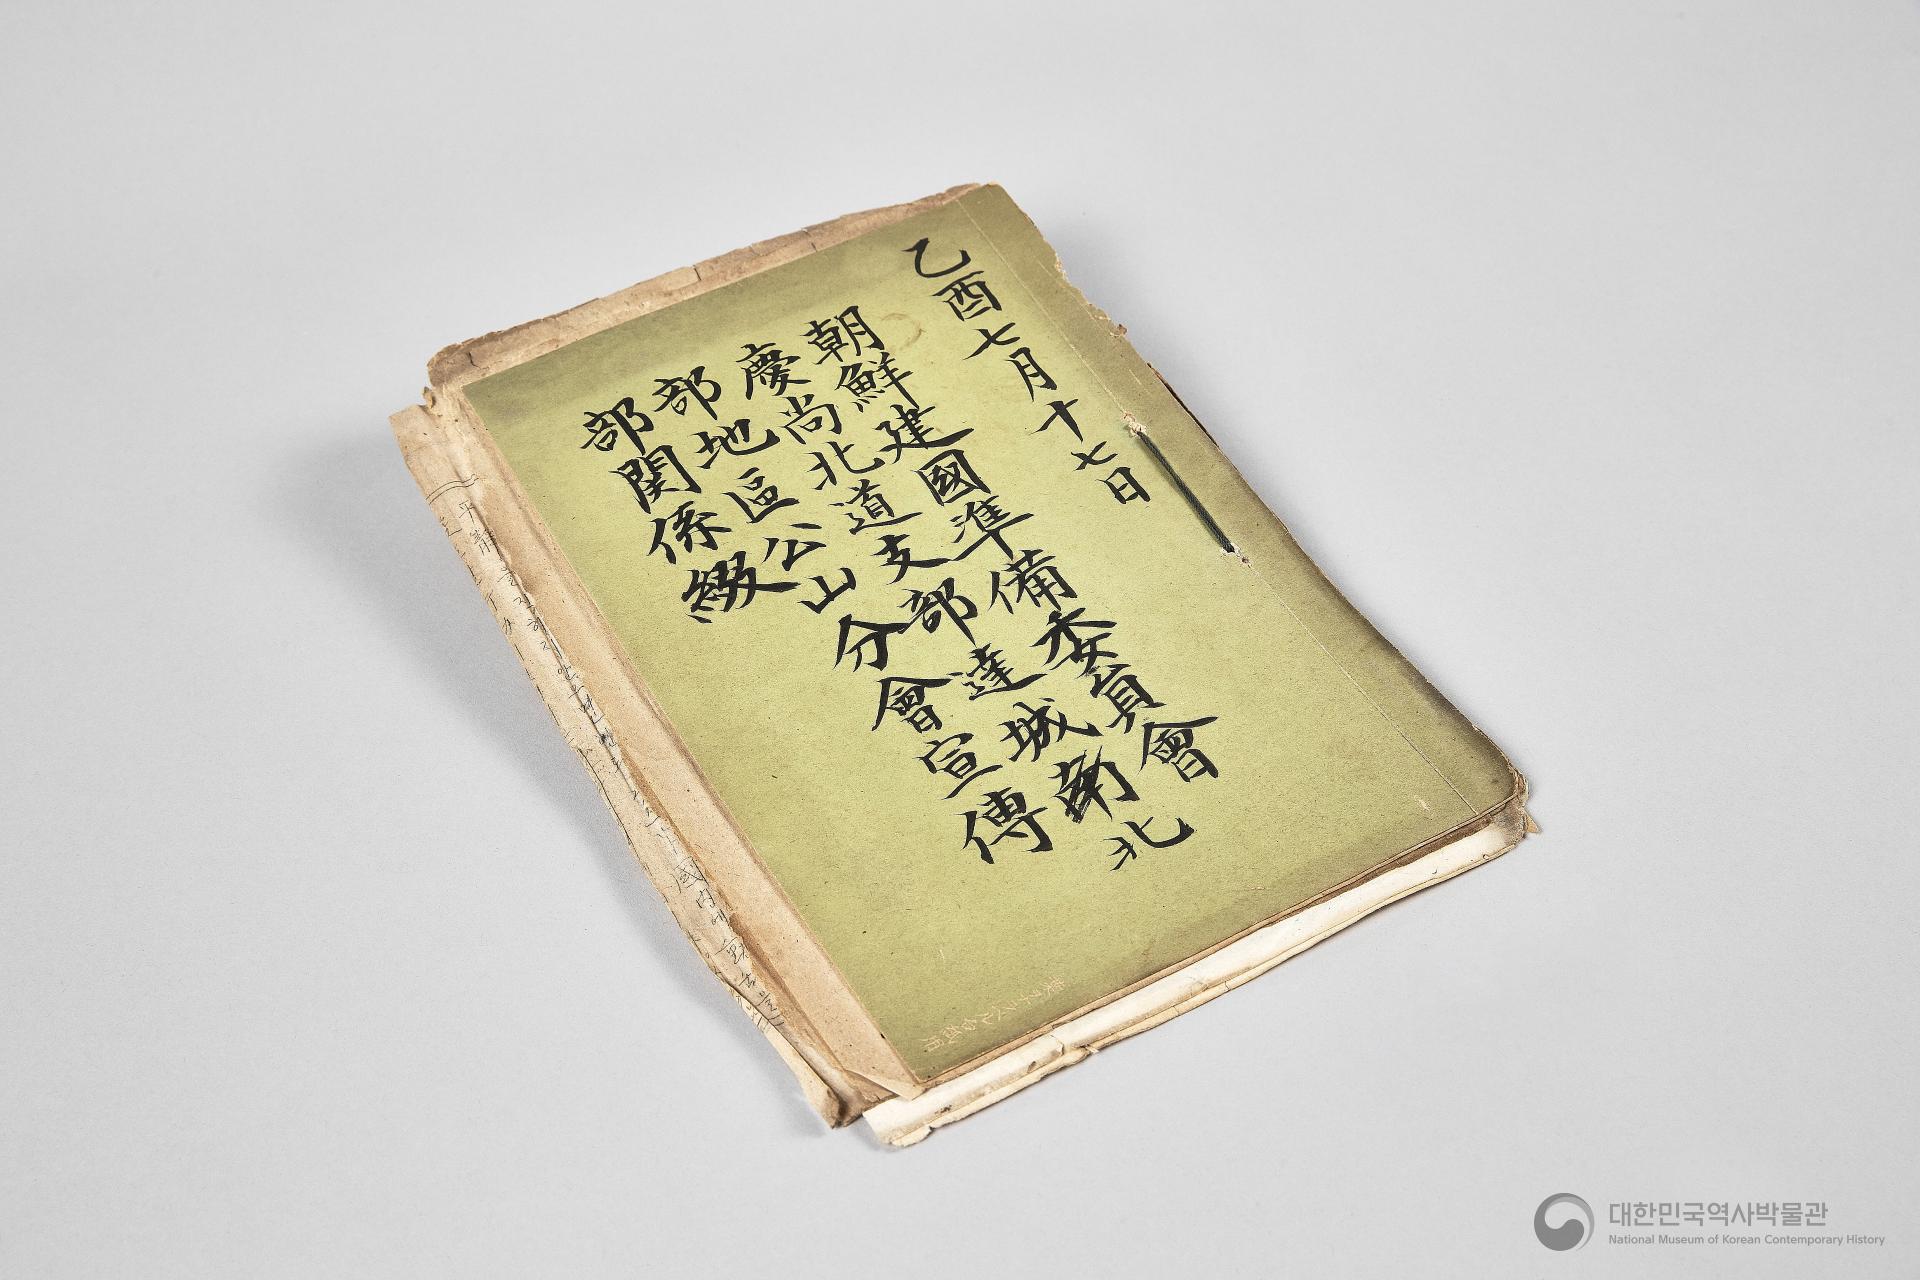 乙酉七月十七日
朝鮮建國準備委員會
慶尚北道支部達城北
部地區公山分會宣傳
部関係綴
國内에
대한민국역사박물관
National Museum of Korean Contemporary History